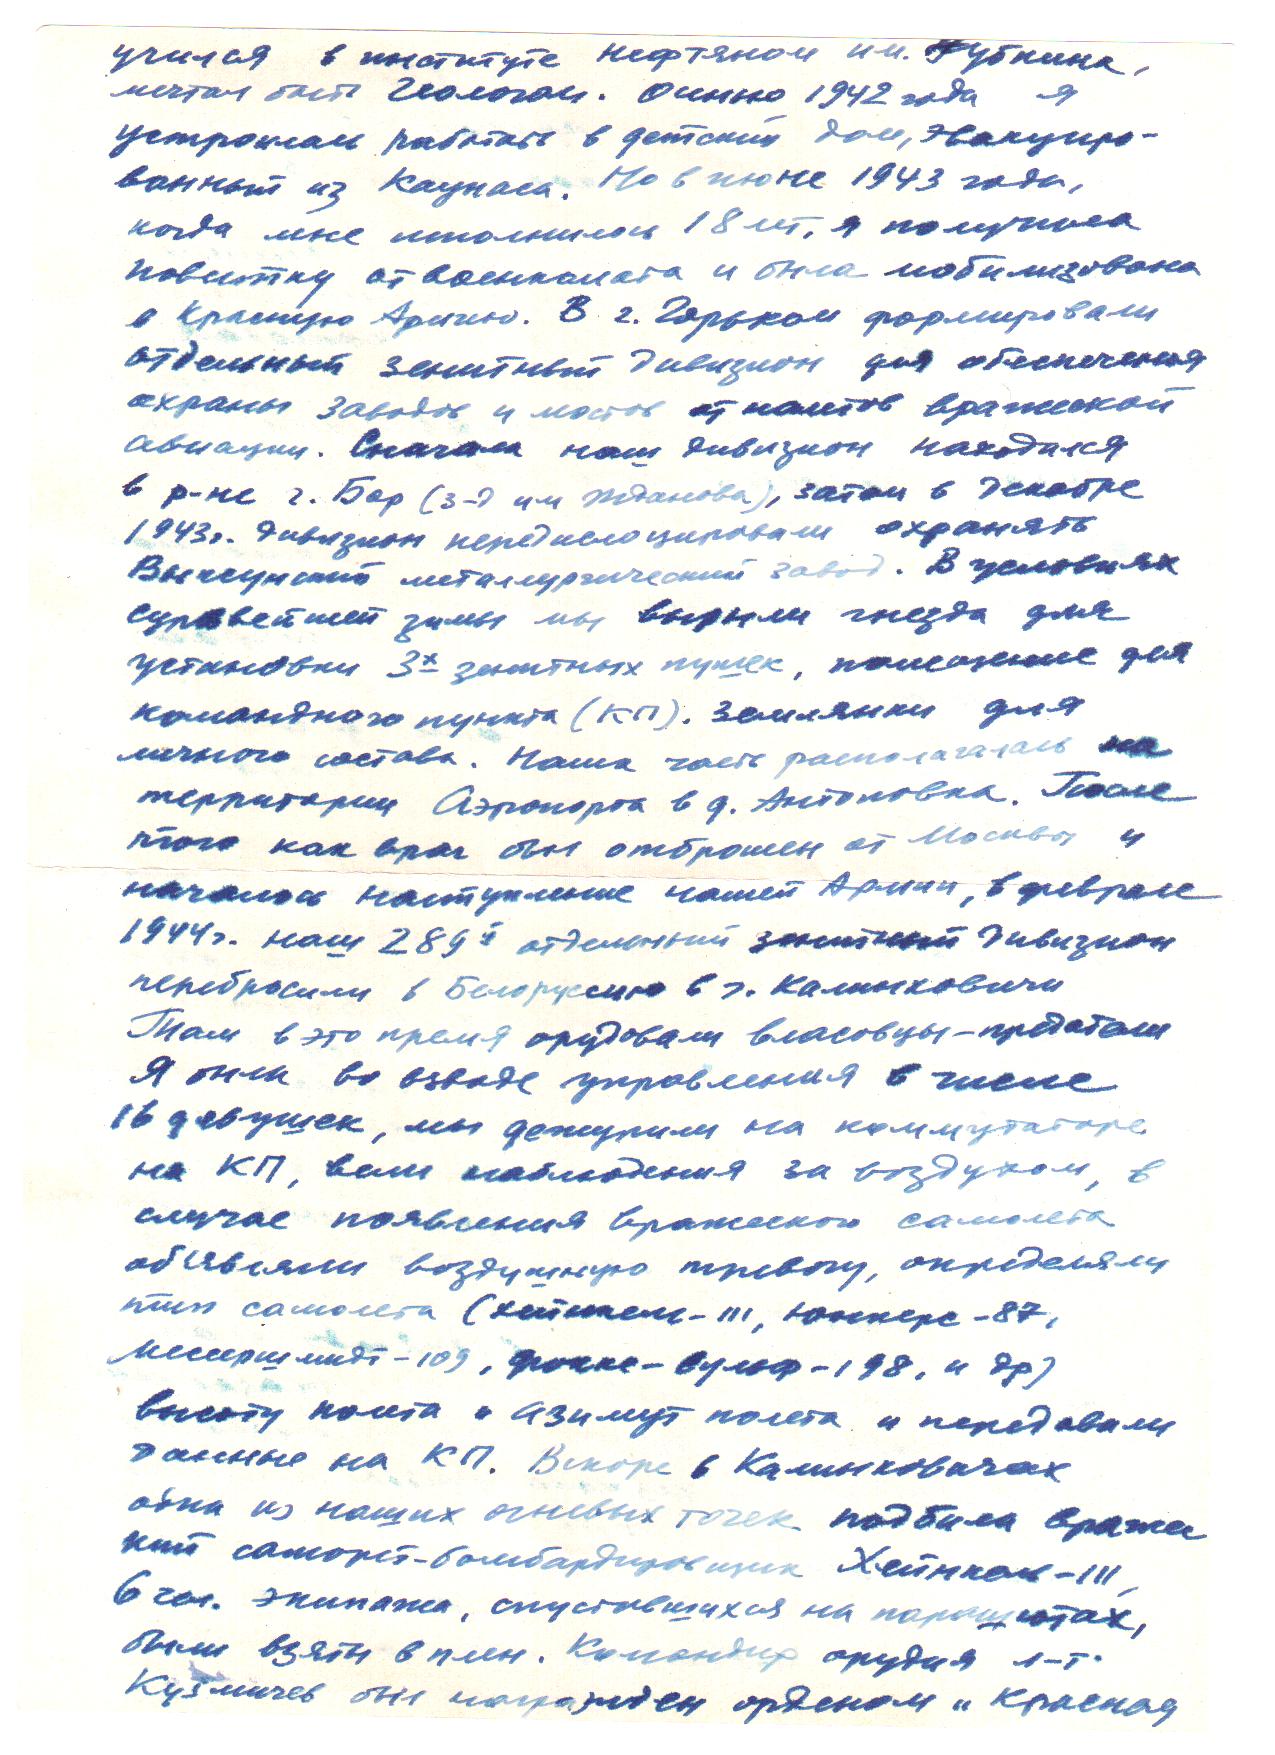 учился в институте нефтяном им. Губкина,
мечтал быть Геологом. Осенью 1942 года я
устроилась работать в детский дом, эвакуиро-
ванный из Каунаса. Но в июне 1943 года,
когда мне исполнилось 18 лет, я получила
повестку от военкомата и была мобилизована
в Красную Армию. В г. Горьком формировали
отдельный зенитный дивизион для обеспечения
охраны заводов и мостов от налетов вражеской
авиации. Сначала наш дивизион находился
в р-не г. Бор (з-д им Жданова), затем в декабре
1943г. дивизион передислоцировали охранять
Выксунский металлургический завод. В условиях
суровейшей зимы мы вырыли гнезда для
установки 3х зенитных пушек, помещение для
командного пункта (КП). Землянки для
личного состава. Наша часть располагалась на
территории Аэропорта в д. Антоповка. После
того как враг был отброшен от Москвы и
началось наступление нашей Армии, в феврале
1944г. наш 289й отдельный зенитный дивизион
перебросили в Белоруссию в г. Калинковичи
Там в это время орудовали власовцы-предатели
Я была во взводе управления в числе
16 девушек, мы дежурили на коммутаторе
на КП, вели наблюдения за воздухом, в
случае появления вражеского самолета
объявляли воздушную тревогу, определяли
тип самолета (хейнкель-111, юнкерс-87,
мессершмидт-109, фокке-вульф-198, и др)
высоту полета и азимут полета и передавали
данные на КП. Вскоре в Калинковичах
одна из наших огневых точек подбила вражес
кий самолет-бомбардировщик Хейнкель-111,
6 чел. экипажа, спустовшихся на парашютах,
были взяты в плен. Командир орудия л-т.
Кузмичев был награжден орденом „Красная